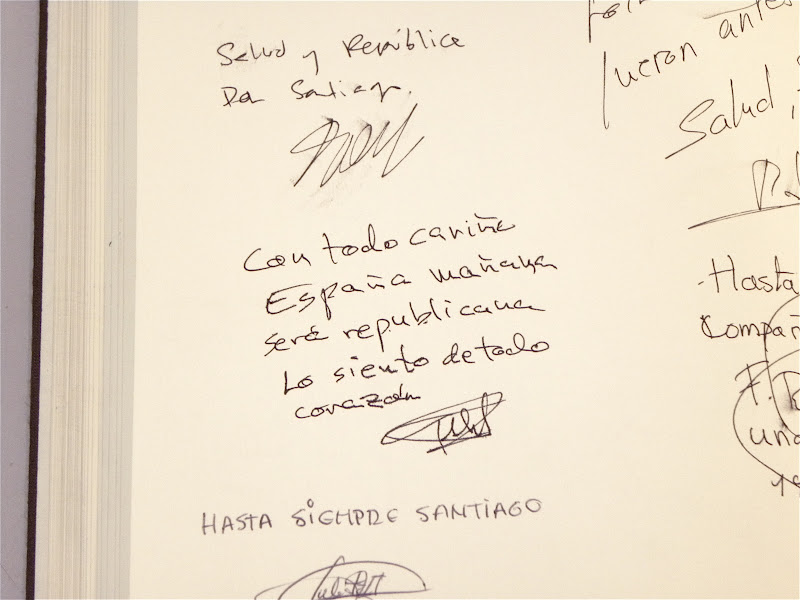 Salud y República
Don Santiago.
Con todo cariño
España mañana
será republicana
Lo siento de todo
corazón
HASTA SIEMPRE SANTIAGO
fueron antes
Salud,
-Hasta
Compañ
F.
una